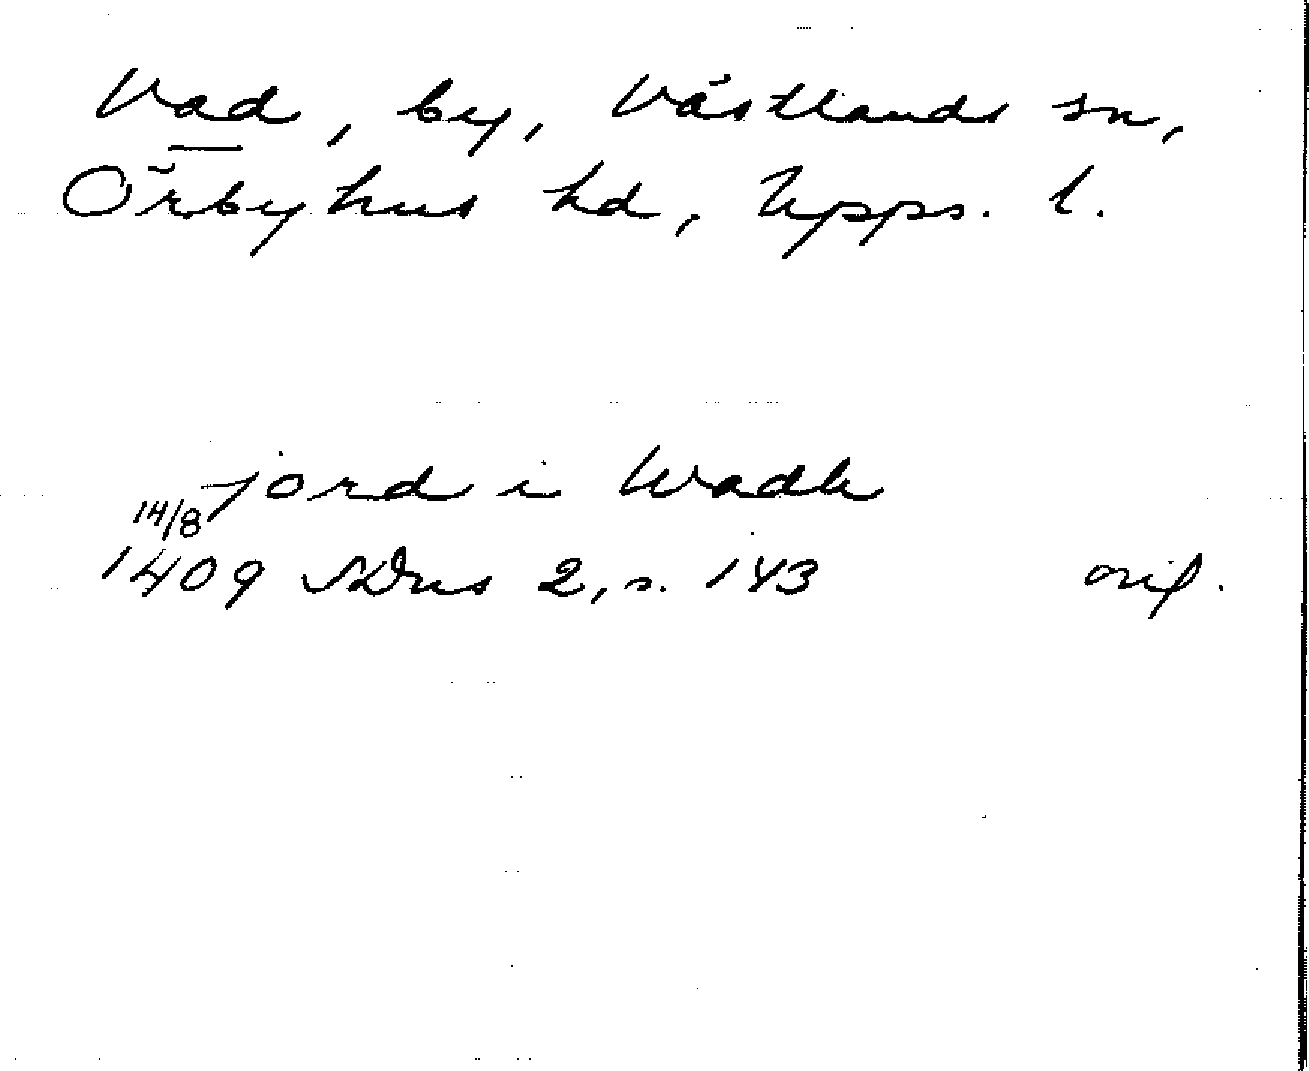 Vad, by, Västlands sn,
Örbyhus hd, Upps. l.
jord i Wadh
14/8
1409 SDns 2, s. 143 orig.